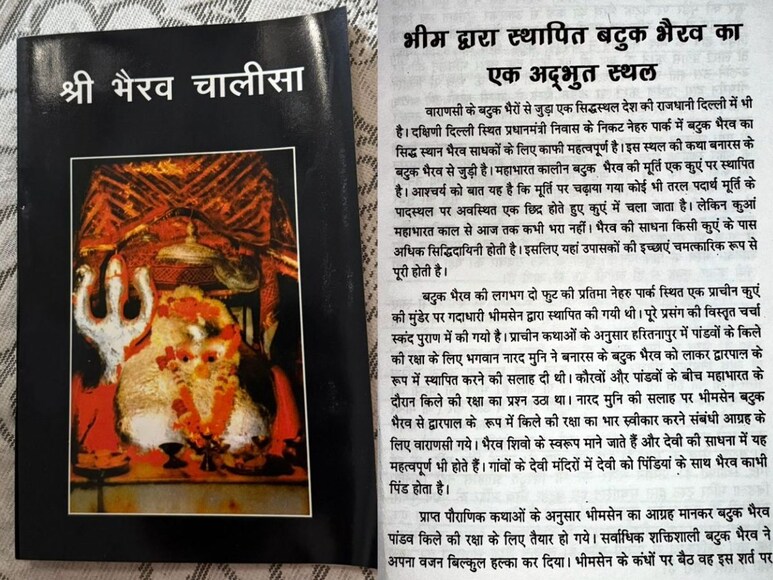 श्री भैरव चालीसा
भीम द्वारा स्थापित बटुक भैरव का
एक अद्‌भुत स्थल
वाराणसी के बटुक भैरों से जुड़ा एक सिद्धस्थल देश की राजधानी दिल्ली में भी
है। दक्षिणी दिल्ली स्थित प्रधानमंत्री निवास के निकट नेहरु पार्क में बटुक भैरव का
सिद्ध स्थान भैरव साधकों के लिए काफी महत्वपूर्ण है। इस स्थल की कथा बनारस के
बटुक भैरव से जुड़ी है। महाभारत कालीन बटुक भैरव की मूर्ति एक कुएं पर स्थापित
है। आश्चर्य को बात यह है कि मूर्ति पर चढ़ाया गया कोई भी तरल पदार्थ मूर्ति के
पादस्थल पर अवस्थित एक छिद्र होते हुए कुएं में चला जाता है। लेकिन कुआं
महाभारत काल से आज तक कभी भरा नहीं। भैरव की साधना किसी कुएं के पास
अधिक सिद्धिदायिनी होती है। इसलिए यहां उपासकों की इच्छाएं चमत्कारिक रूप से
पूरी होती है।
बटुक भैरव की लगभग दो फुट की प्रतिमा नेहरु पार्क स्थित एक प्राचीन कुएं
की मुंडेर पर गदाधारी भीमसेन द्वारा स्थापित की गयी थी। पूरे प्रसंग की विस्तृत चर्चा
स्कंद पुराण में की गयो है। प्राचीन कथाओं के अनुसार हस्तिनापुर में पांडवों के किले
की रक्षा के लिए भगवान नारद मुनि ने बनारस के बटुक भैरव को लाकर द्वारपाल के
रूप में स्थापित करने की सलाह दी थी। कौरवों और पांडवों के बीच महाभारत के
दौरान किले की रक्षा का प्रश्न उठा था। नारद मुनि की सलाह पर भीमसेन बटुक
भैरव से द्वारपाल के रूप में किले की रक्षा का भार स्वीकार करने संबंधी आग्रह के
लिए वाराणसी गये। भैरव शिवो के स्वरूप माने जाते हैं और देवी की साधना में यह
महत्वपूर्ण भी होते हैं। गांवों के देवी मंदिरों में देवी को पिंडियां के साथ भैरव काभी
पिंड होता है।
प्राप्त पौराणिक कथाओं के अनुसार भीमसेन का आग्रह मानकर बटुक भैरव
पांडव किले की रक्षा के लिए तैयार हो गये। सर्वाधिक शक्तिशाली बटुक भैरव ने
अपना वजन बिल्कुल हल्का कर दिया। भीमसेन के कंधों पर बैठ वह इस शर्त पर